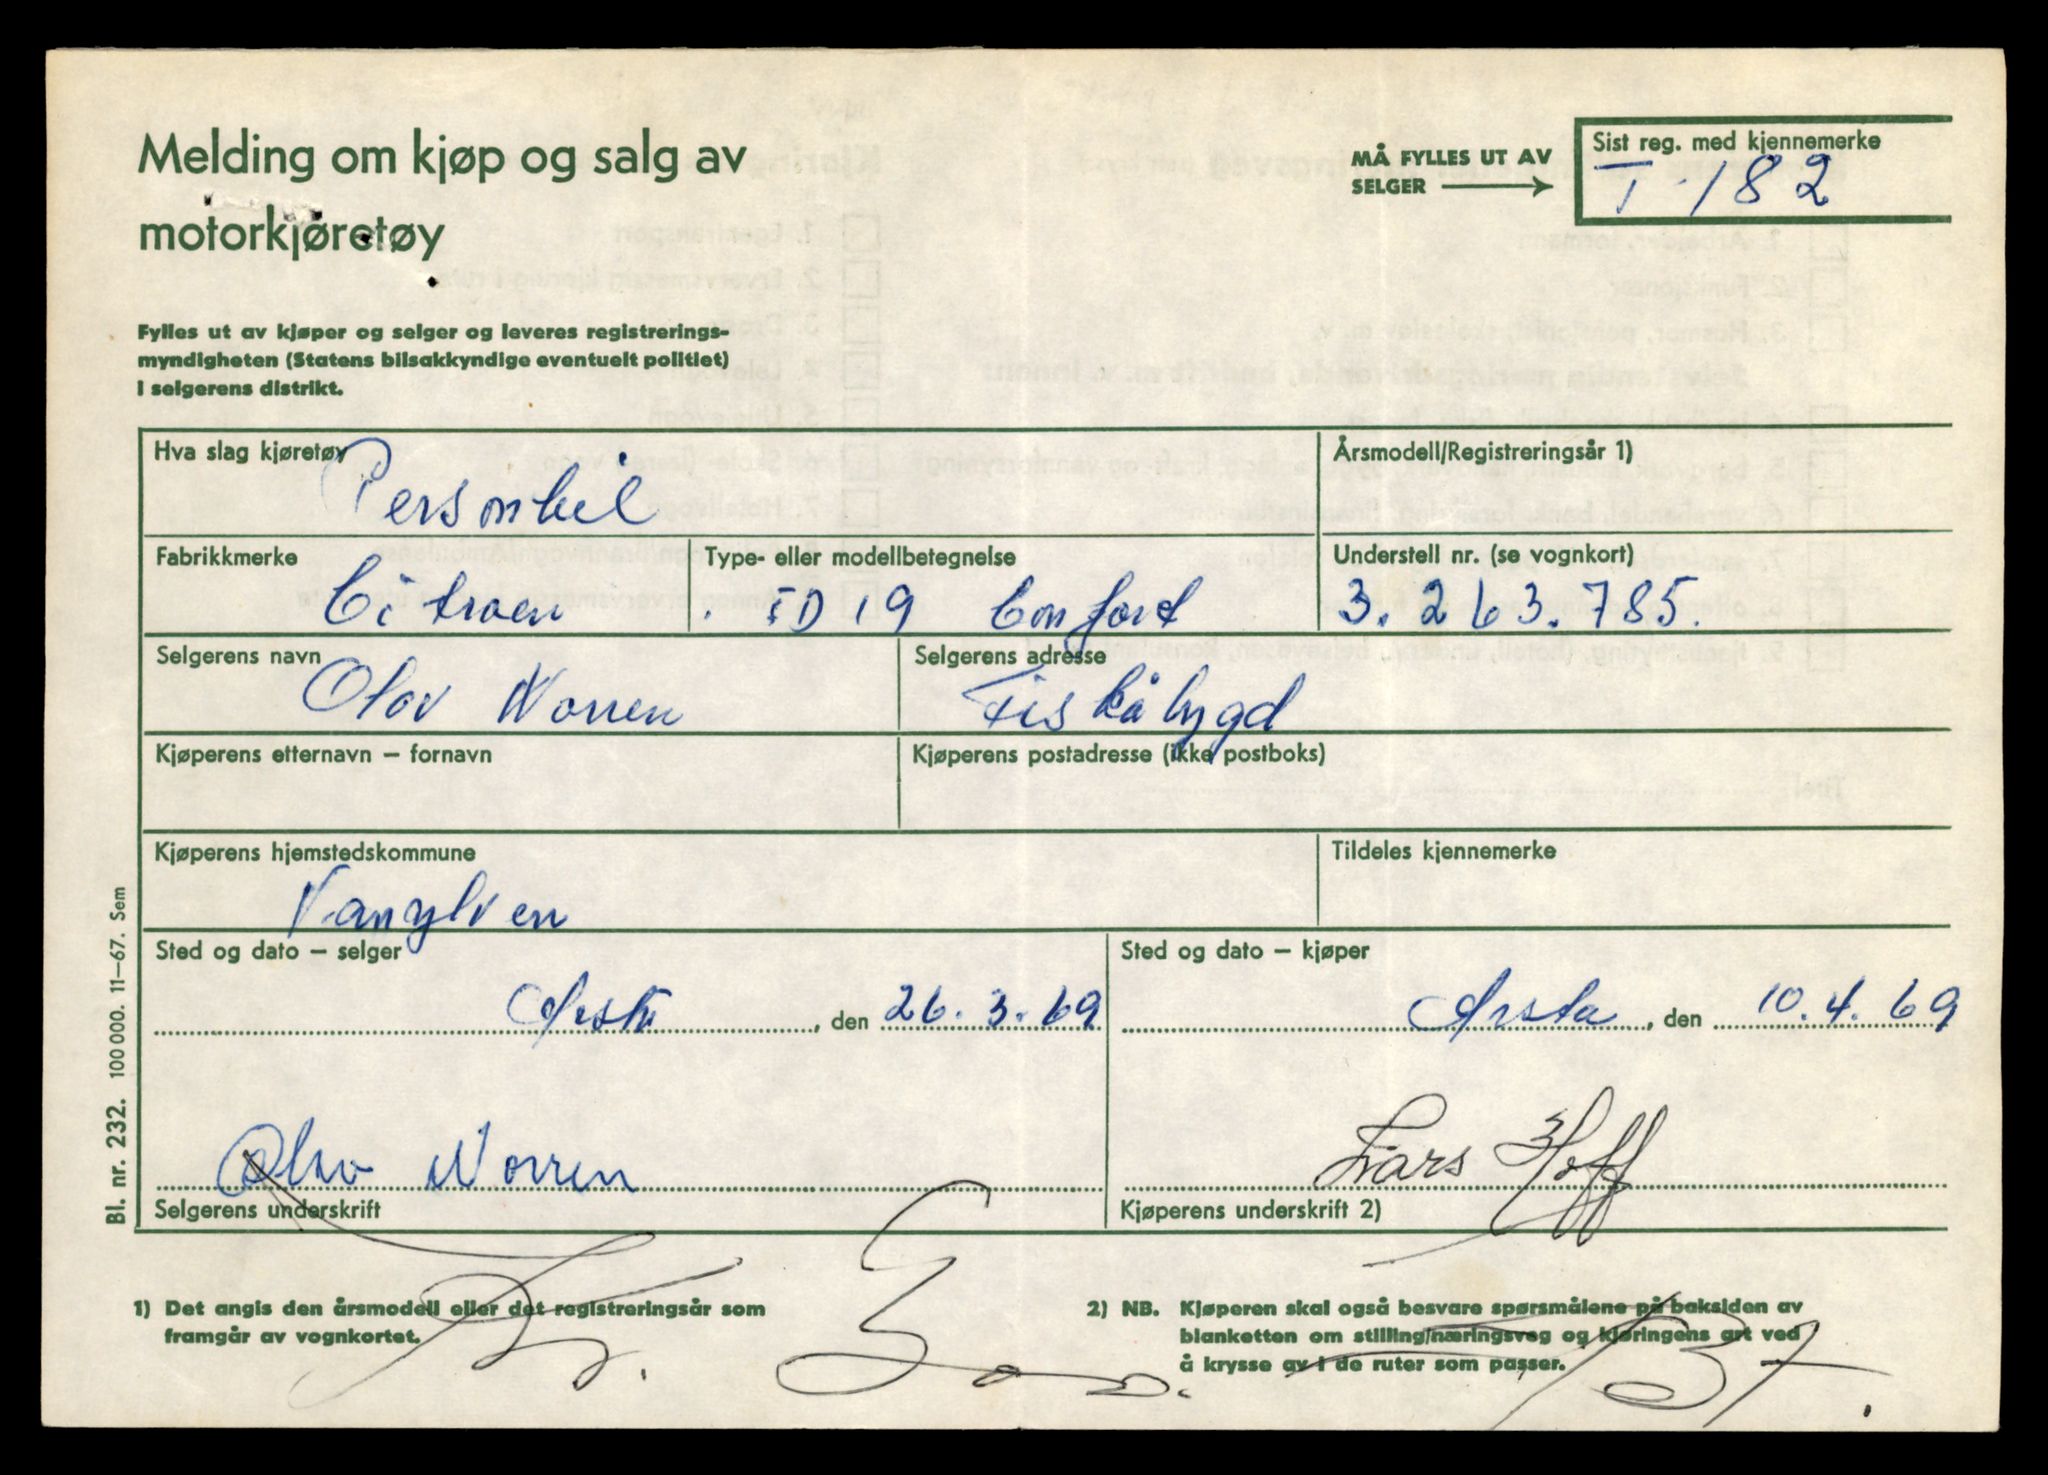 Melding om kjøp og salg av
motorkjøretøy
MÅ FYLLES UT AV
SELGER
Sist reg. med kjennemerke
T-182
Fylles ut av kjøper og selger og leveres registrerings-
myndigheten (Statens bilsakkyndige eventuelt politiet)
i selgerens distrikt.
Hva slag kjøretøy
Personbil
Årsmodell/Registreringsår 1)
Fabrikkmerke
Citroen
Type- eller modellbetegnelse
ID 19 Confort
Understell nr. (se vognkort)
3.263.785.
Selgerens navn
Olav Norren
Selgerens adresse
Fiskåbygd
Kjøperens etternavn – fornavn
Kjøperens postadresse (ikke postboks)
Kjøperens hjemstedskommune
Vanylven
Tildeles kjennemerke
Sted og dato – selger
Ørsta, den 26.3.69
Sted og dato – kjøper
Ørsta, den 10.4.69
Olav Norren
Selgerens underskrift
Lars Hoff
Kjøperens underskrift 2)
Kr.
1) Det angis den årsmodell eller det registreringsår som
framgår av vognkortet.
2) NB. Kjøperen skal også besvare spørsmålene på baksiden av
blanketten om stilling/næringsveg og kjøringens art ved
å krysse av i de ruter som passer.
Bl. nr. 232. 100 000. 11–67. Sem